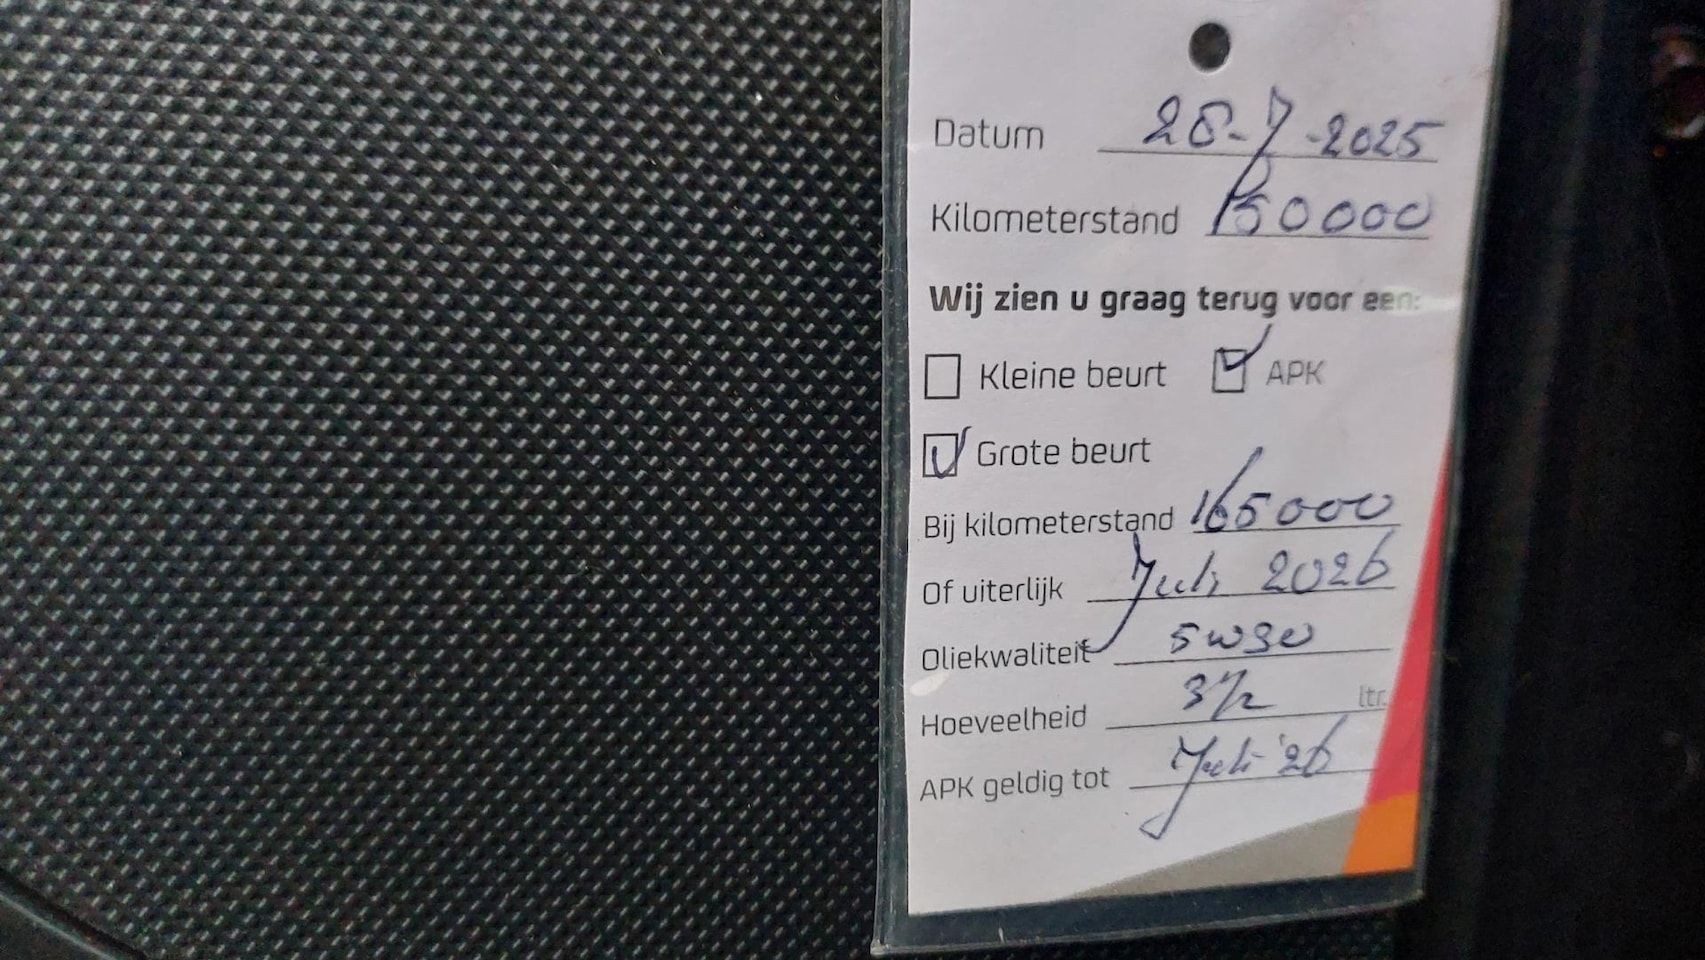 Datum 28-7-2025
Kilometerstand 150000
Wij zien u graag terug voor een:
Kleine beurt APK
Grote beurt
Bij kilometerstand 165000
Of uiterlijk Juli 2026
Oliekwaliteit 5W30
Hoeveelheid 3 1/2 ltr.
APK geldig tot Juli '26